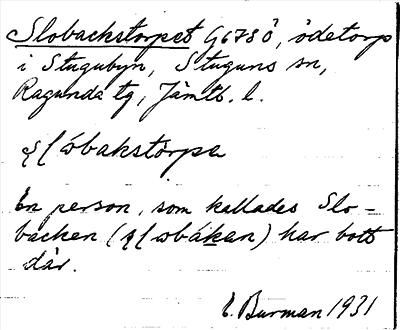 Slobackstorpet G6 78 ö, ödetorp
i Stugubyn, Stuguns sn,
Ragunda tg, Jämtl. l.
En person, som kallades Slo-
backen ( ) har bott
där.
E. Burman 1931